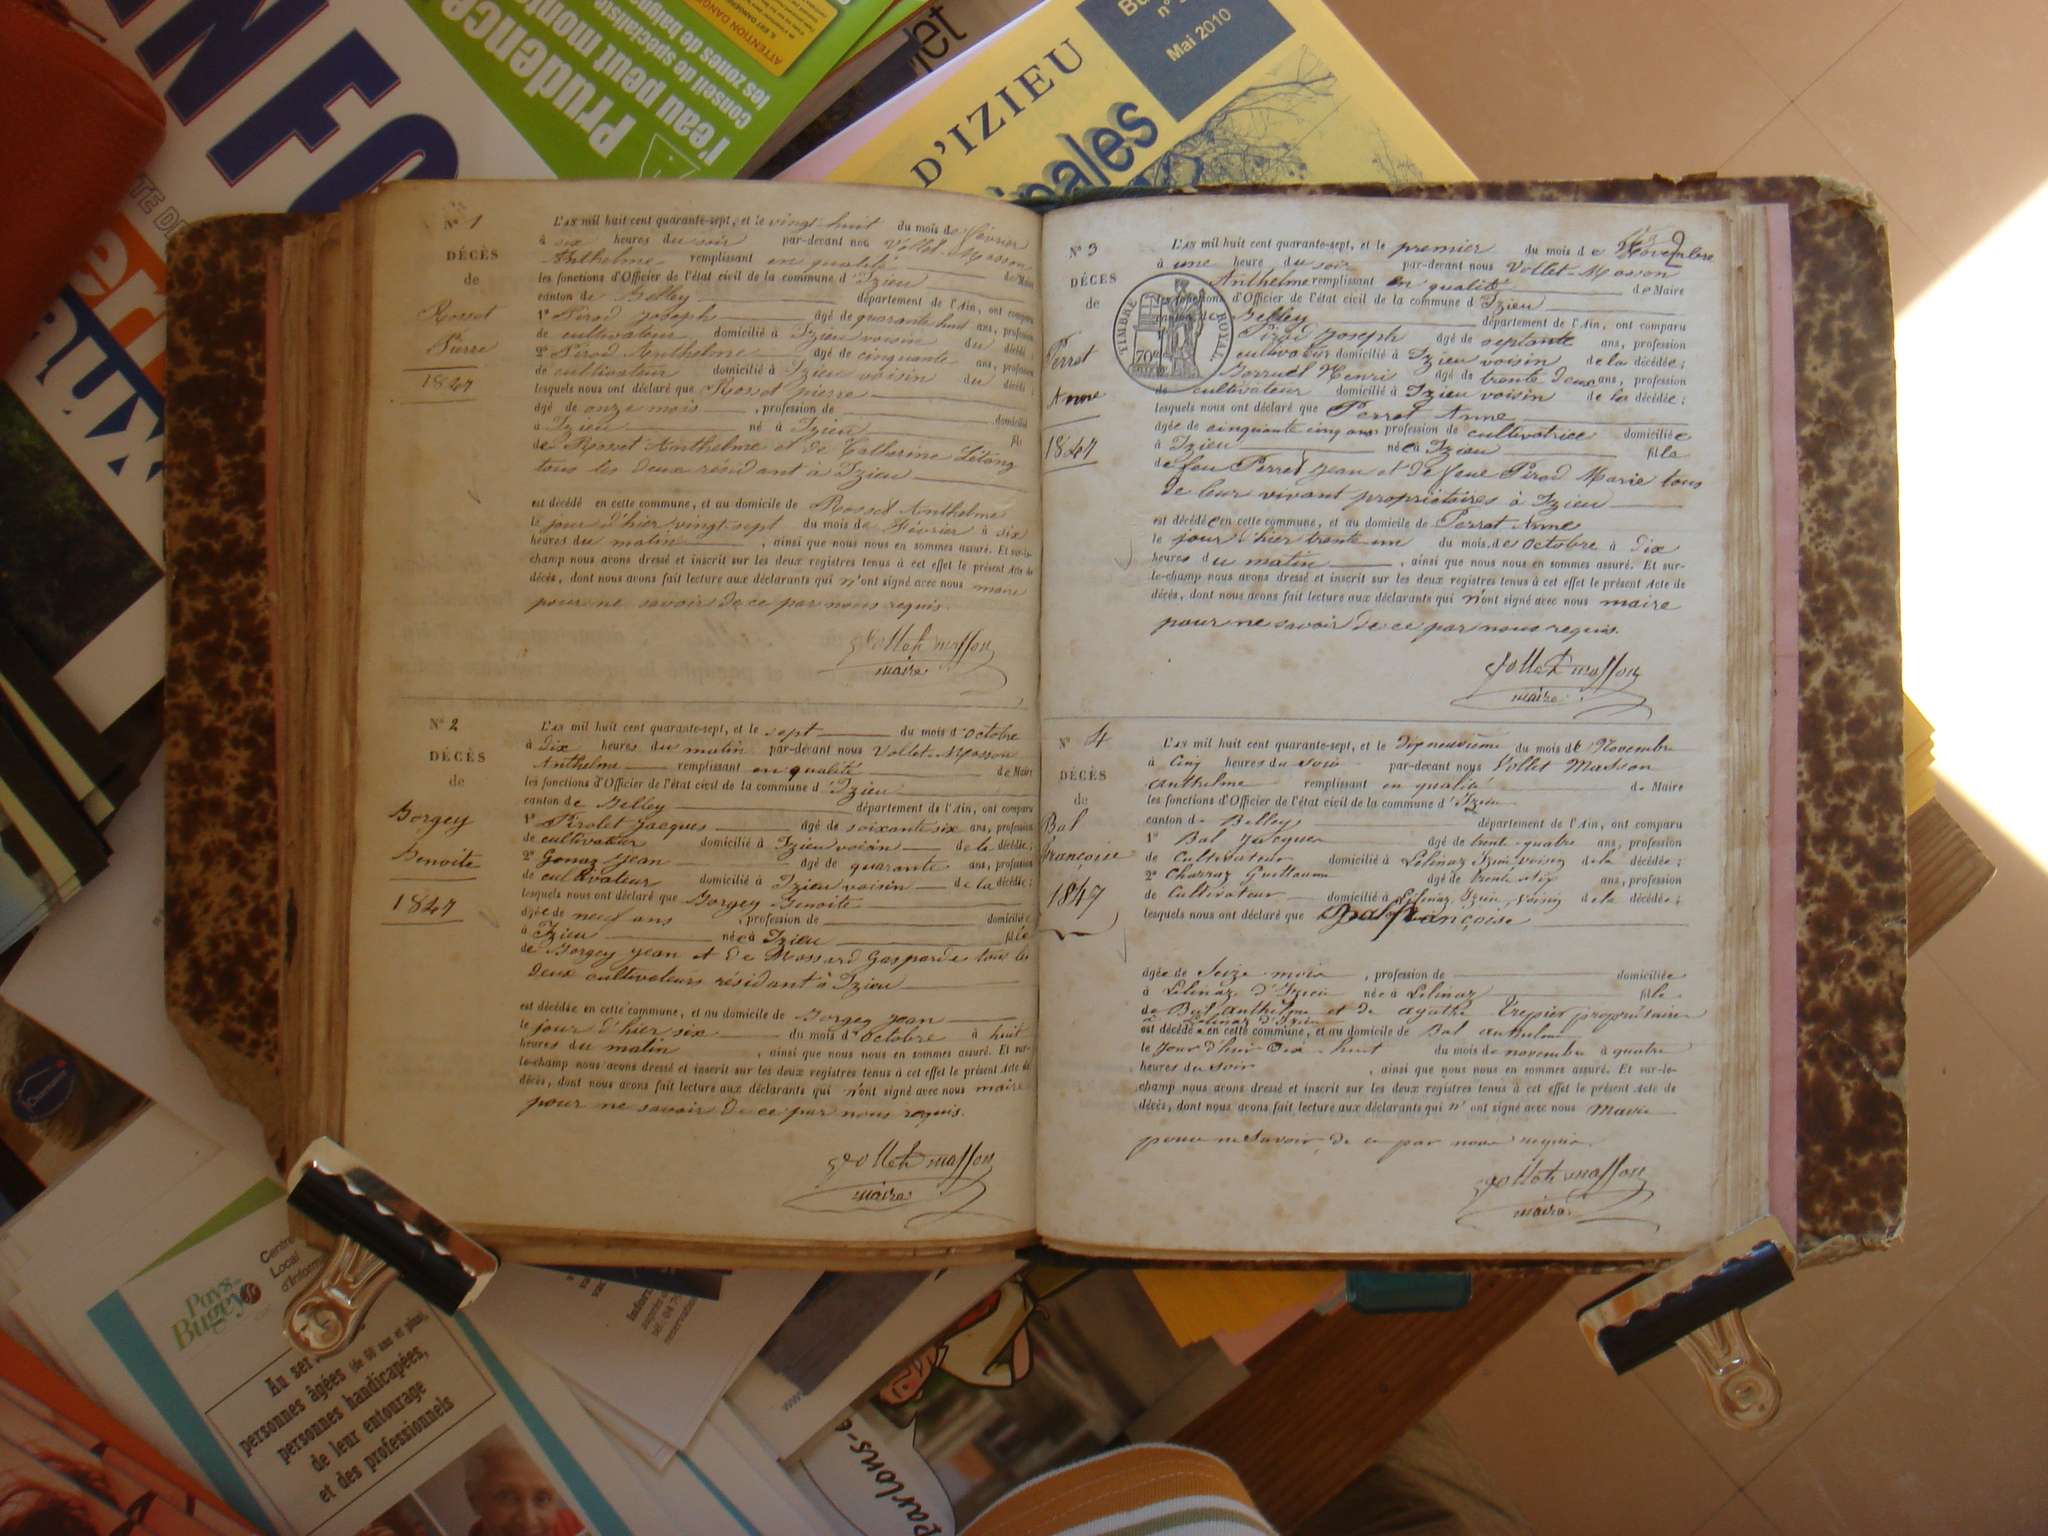 INFO
Prudence
l'eau peut monte
Conseil de spécialiste
les zones de baigna
ATTENTION DANGER
D'IZIEU
cipales
n°
Mai 2010
N° 1
DÉCÈS
de
Rosset
Pierre
1847
L'AN mil huit cent quarante-sept, et le vingt-huit du mois de février
à six heures du soir par-devant nos Vollet-Masson
Anthelme remplissant en qualité de Maire
les fonctions d'Officier de l'état civil de la commune d'Izieu
canton de Belley département de l'Ain, ont comparu
1° Pirod Joseph âgé de quarante huit ans, profession
de cultivateur domicilié à Izieu voisin du décédé;
2° Pirod Anthelme âgé de cinquante ans, profession
de cultivateur domicilié à Izieu voisin du décédé
lesquels nous ont déclaré que Rosset pierre
âgé de onze mois, profession de domicilié
à Izieu né à Izieu fils
de Rosset Anthelme et de Catherine
tous les deux résidant à Izieu
est décédé en cette commune, et au domicile de Rosset Anthelme
le jour d'hier vingt-sept du mois de Février à six
heures du matin, ainsi que nous nous en sommes assuré. Et sur-le-
champ nous avons dressé et inscrit sur les deux registres tenus à cet effet le présent Acte de
décès, dont nous avons fait lecture aux déclarants qui n'ont signé avec nous maire
pour ne savoir de ce par nous requis.
Vollet masson
maire
N° 2
DÉCÈS
de
Borgey
Benoite
1847
L'AN mil huit cent quarante-sept, et le sept du mois d'Octobre
à dix heures du matin par-devant nous Vollet-Masson
Anthelme remplissant en qualité de Maire
les fonctions d'Officier de l'état civil de la commune d Izieu
canton de Belley département de l'Ain, ont comparu
1° Pirolet Jacques âgé de soixante six ans, profession
de cultivateur domicilié à Izieu voisin de la décédée;
2° Gonaz Jean âgé de quarante ans, profession
de cultivateur domicilié à Izieu voisin de la décédée;
lesquels nous ont déclaré que Borgey Benoite
âgée de neuf ans, profession de domiciliée
à Izieu née à Izieu fille
de Borgey Jean et de Mossard Gasparde tous les
deux cultivateurs résidant à Izieu
est décédée en cette commune, et au domicile de Borgey Jean
le jour d'hier six du mois d'Octobre à huit
heures du matin, ainsi que nous nous en sommes assuré. Et sur-
le-champ nous avons dressé et inscrit sur les deux registres tenus à cet effet le présent Acte de
décès, dont nous avons fait lecture aux déclarants qui n'ont signé avec nous maire
pour ne savoir de ce par nous requis.
Vollet masson
maire
2
N° 3
DÉCÈS
de
Perret
Anne
1847
TIMBRE ROYAL
70
L'AN mil huit cent quarante-sept, et le premier du mois de Novembre
à une heure du soir par-devant nous Vollet-Masson
Anthelme remplissant en qualité de Maire
les fonctions d'Officier de l'état civil de la commune d'Izieu
canton de Belley département de l'Ain, ont comparu
Pirod Joseph âgé de septante ans, profession
cultivateur domicilié à Izieu voisin de la décédée;
Henri âgé de trente deux ans, profession
de cultivateur domicilié à Izieu voisin de la décédée;
lesquels nous ont déclaré que Perret Anne
âgée de cinquante cinq ans profession de cultivatrice domiciliée
à Izieu née à Izieu fille
de feu Perret Jean et de feue Pirod Marie tous
de leur vivant propriétaires à Izieu
est décédée en cette commune, et au domicile de Perret Anne
le jour d'hier trente-un du mois de Octobre à dix
heures du matin, ainsi que nous nous en sommes assuré. Et sur-
le-champ nous avons dressé et inscrit sur les deux registres tenus à cet effet le présent Acte de
décès, dont nous avons fait lecture aux déclarants qui n'ont signé avec nous maire
pour ne savoir de ce par nous requis.
Vollet masson
maire
N° 4
DÉCÈS
de
Bal
françoise
1847
L'AN mil huit cent quarante-sept, et le dix neuvième du mois de Novembre
à cinq heures du soir par-devant nous Vollet Masson
anthelme remplissant en qualité de Maire
les fonctions d'Officier de l'état civil de la commune d'Izieu
canton de Belley département de l'Ain, ont comparu
1° Bal Jacques âgé de trente-quatre ans, profession
de Cultivateur domicilié à Lélinaz Izieu voisin de la décédée;
2° Charvaz Guillaume âgé de trente six ans, profession
de Cultivateur domicilié à Lélinaz Izieu voisin de la décédée;
lesquels nous ont déclaré que Bal françoise
âgée de Seize mois, profession de domiciliée
à Lélinaz d'Izieu née à Lélinaz fille
de Bal anthelme et de agathe Trepier propriétaires
à Lélinaz d'Izieu
est décédée en cette commune, et au domicile de Bal anthelme
le jour d'hier dix-huit du mois de novembre à quatre
heures du soir, ainsi que nous nous en sommes assuré. Et sur-le-
champ nous avons dressé et inscrit sur les deux registres tenus à cet effet le présent Acte de
décès, dont nous avons fait lecture aux déclarants qui n'ont signé avec nous Maire
pour ne Savoir de ce par nous requis.
Vollet masson
maire
Pays
Bugey
Centre
Local
d'Inform
Au ser
personnes âgées (de 60 ans et plus),
personnes handicapées,
de leur entourage
et des professionnels
parlons-e